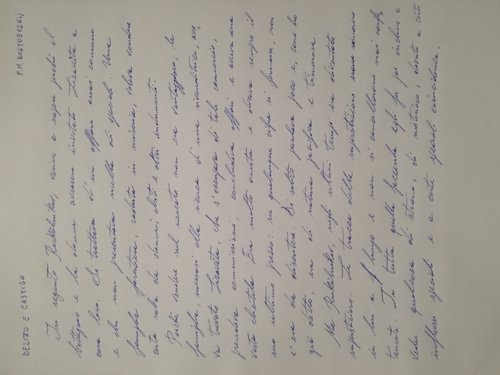 DELITTO E CASTIGO F.M. DOSTOEVSKIJ
In seguito Raskolnikov, venne a sapere perché il
bottegaio e la donna avevano invitato Lizavèta a
casa loro. Si trattava d'un affare assai comune
e che non presentava nulla di speciale. Una
famiglia forestiera, caduta in miseria, voleva vendere
certa roba da donna: abiti e altri indumenti.
Poiché vendere sul mercato non era vantaggioso, la
famiglia, messasi alla ricerca di una rivenditrice, ave-
va trovato Lizavèta, che s'occupava di tale commercio,
prendeva commissioni, concludeva affari e aveva una
vasta clientela. Era molto onesta e diceva sempre il
suo ultimo prezzo: su qualunque cifra si fermasse, non
c'era da discutere. Di solito parlava poco e, come ho
già detto, era di natura pacifica e timorosa.
Ma Raskolnikov, negli ultimi tempi era diventato
superstizioso. Le tracce della superstizione rimasero
in lui a lungo e non si cancellarono mai
In tutta quella faccenda egli fu poi incline a
vedere qualcosa di strano, di misterioso, dovuto a certi
influssi speciali e a certe speciali coincidenze.